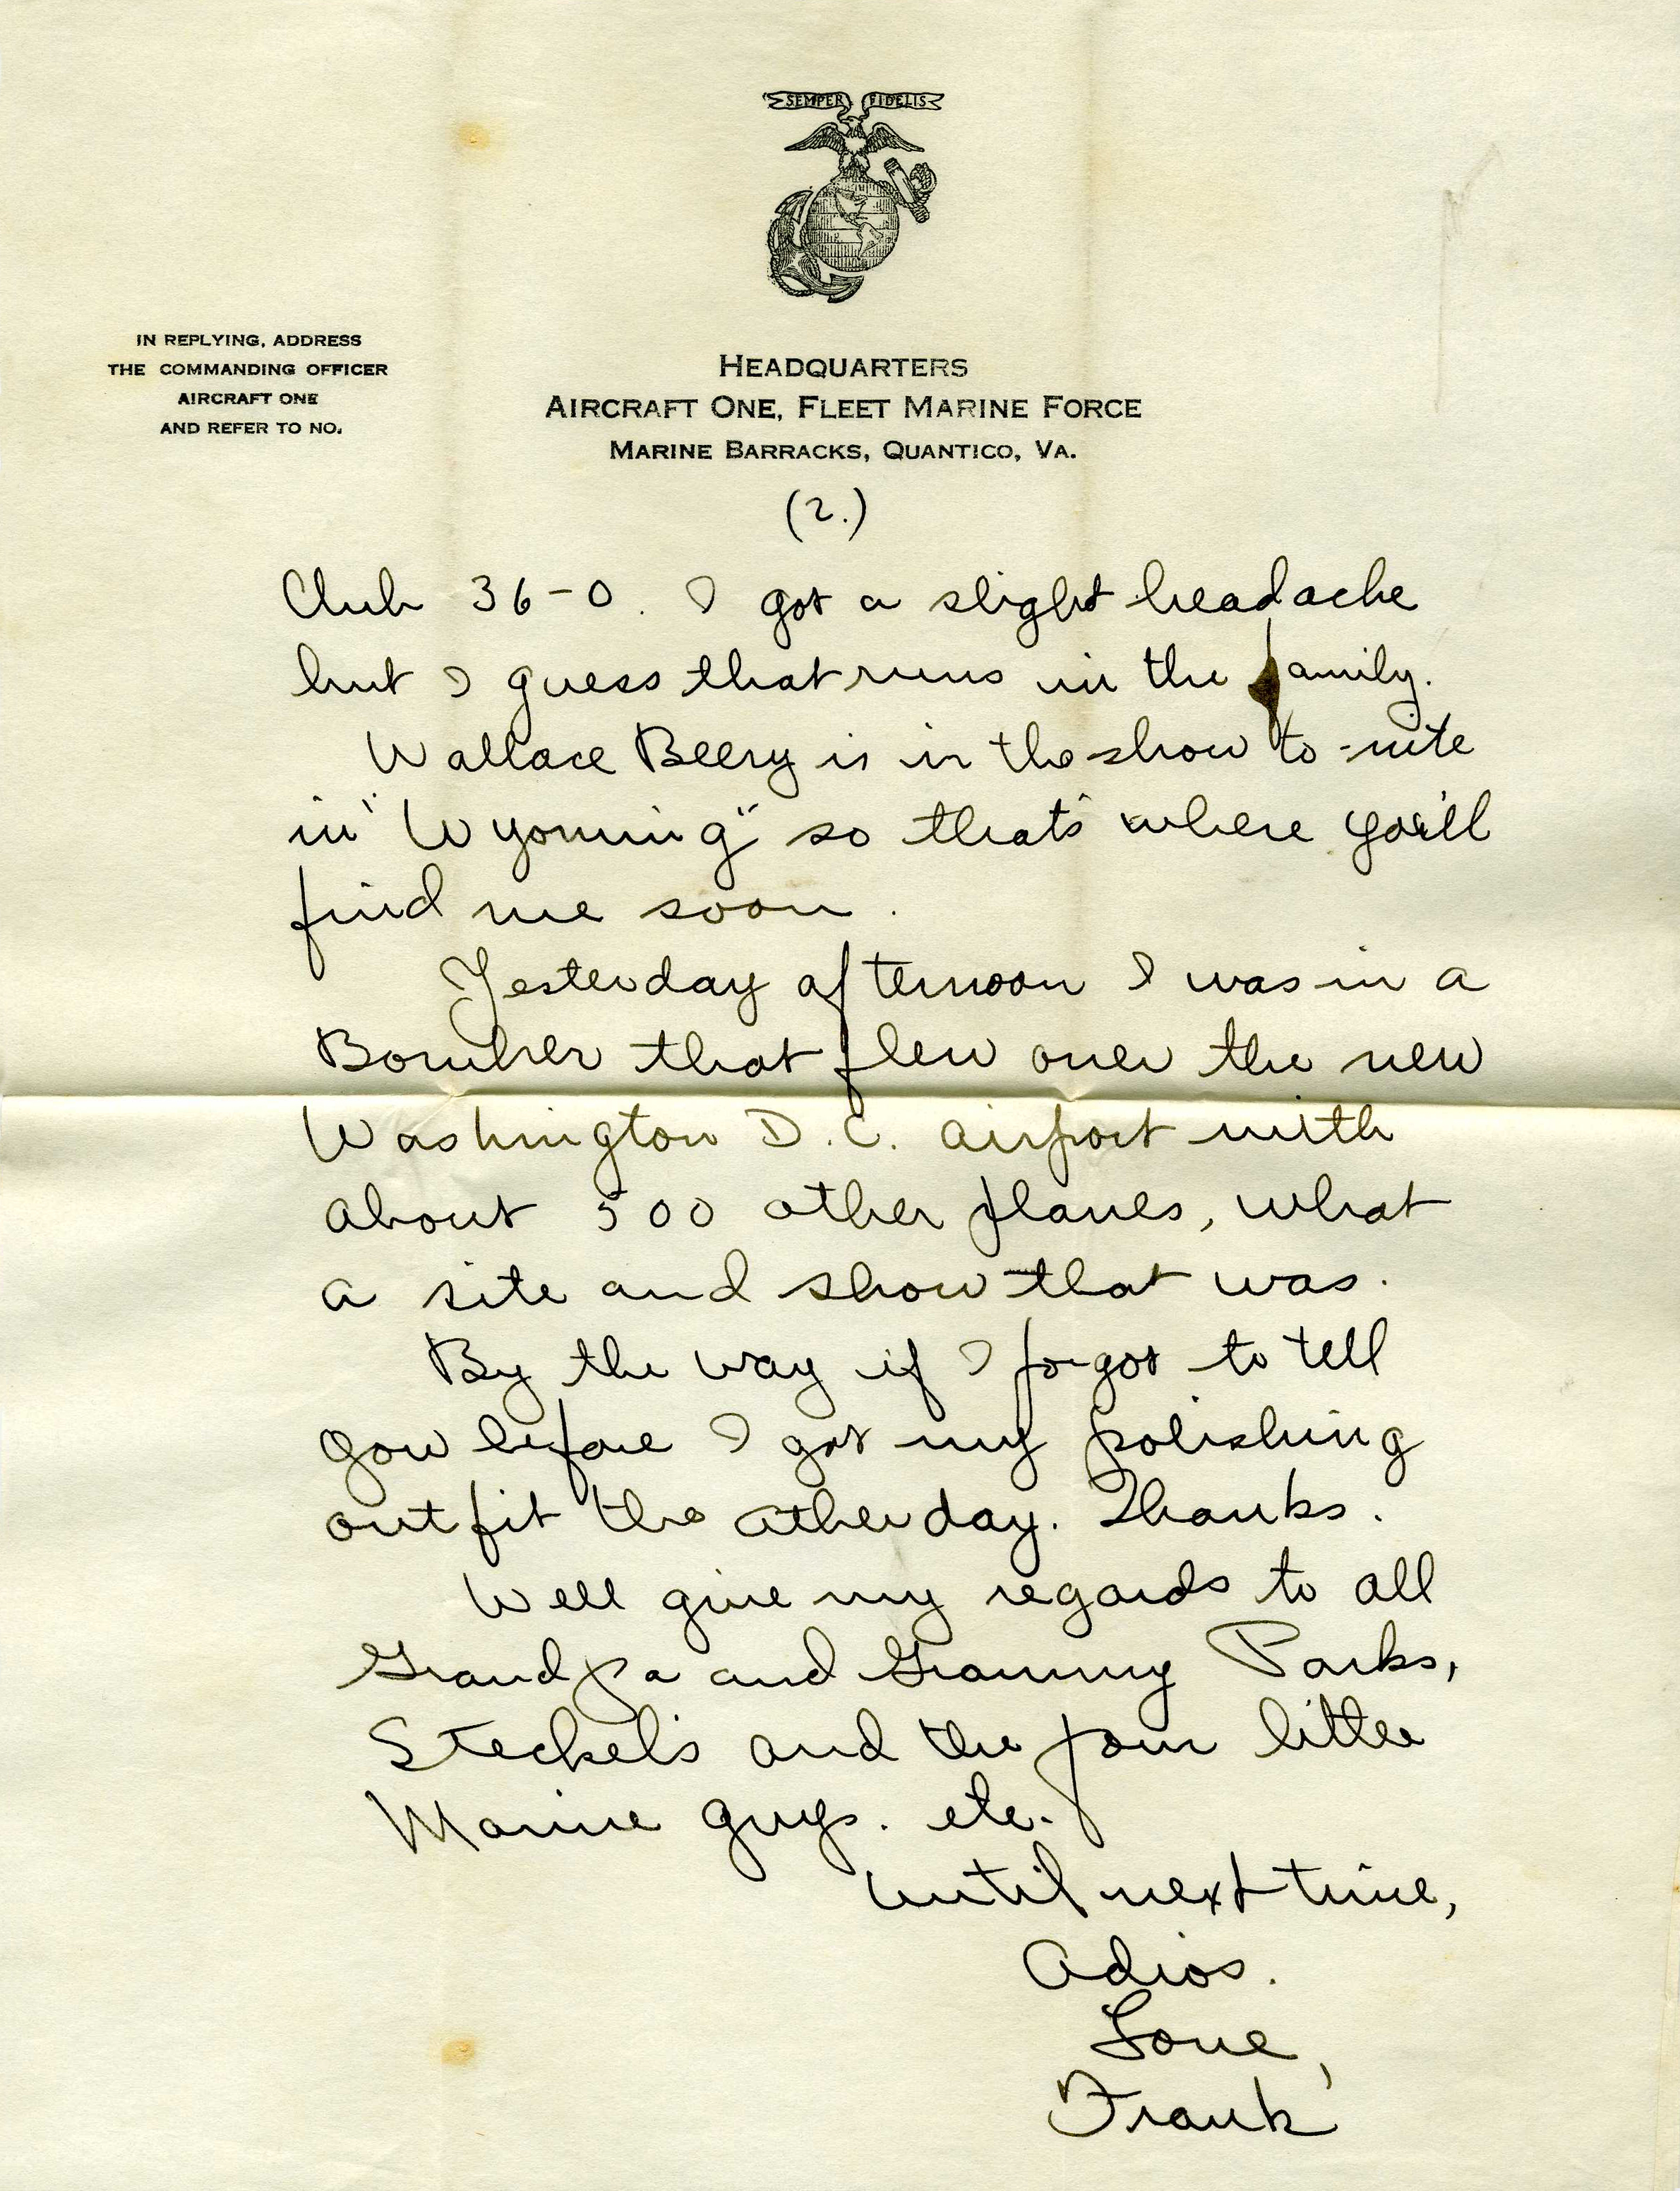 SEMPER FIDELIS
IN REPLYING, ADDRESS
THE COMMANDING OFFICER
AIRCRAFT ONE
AND REFER TO NO.
HEADQUARTERS
AIRCRAFT ONE, FLEET MARINE FORCE
MARINE BARRACKS, QUANTICO, VA.
(2.)
Club 36-0. I got a slight headache
but I guess that runs in the family.
Wallace Beery is in the show to-nite
in "Wyoming" so that's where you'll
find me soon.
Yesterday afternoon I was in a
Bomber that flew over the new
Washington D.C. airport with
about 500 other planes, what
a site and show that was.
By the way if I forgot to tell
you before I got my polishing
outfit the other day. Thanks.
Well give my regards to all
Grandpa and Grammy Parks,
Steckel's and the four little
Marine guys. etc.
Until next time,
Adios.
Love,
Frank